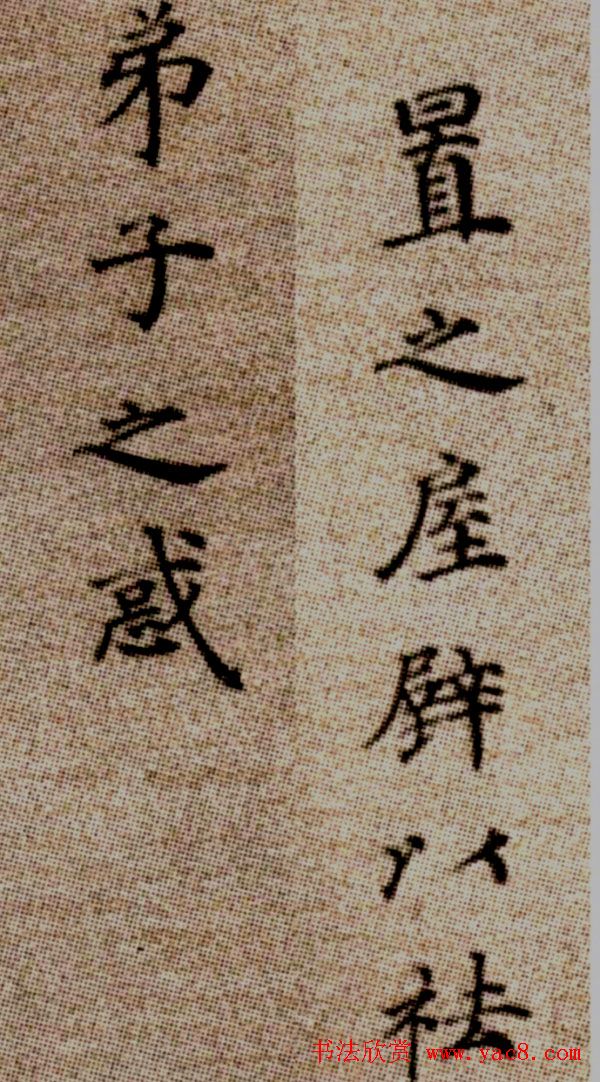 置之屋辟以祛
弟子之惑
书法欣赏 www.yac8.com